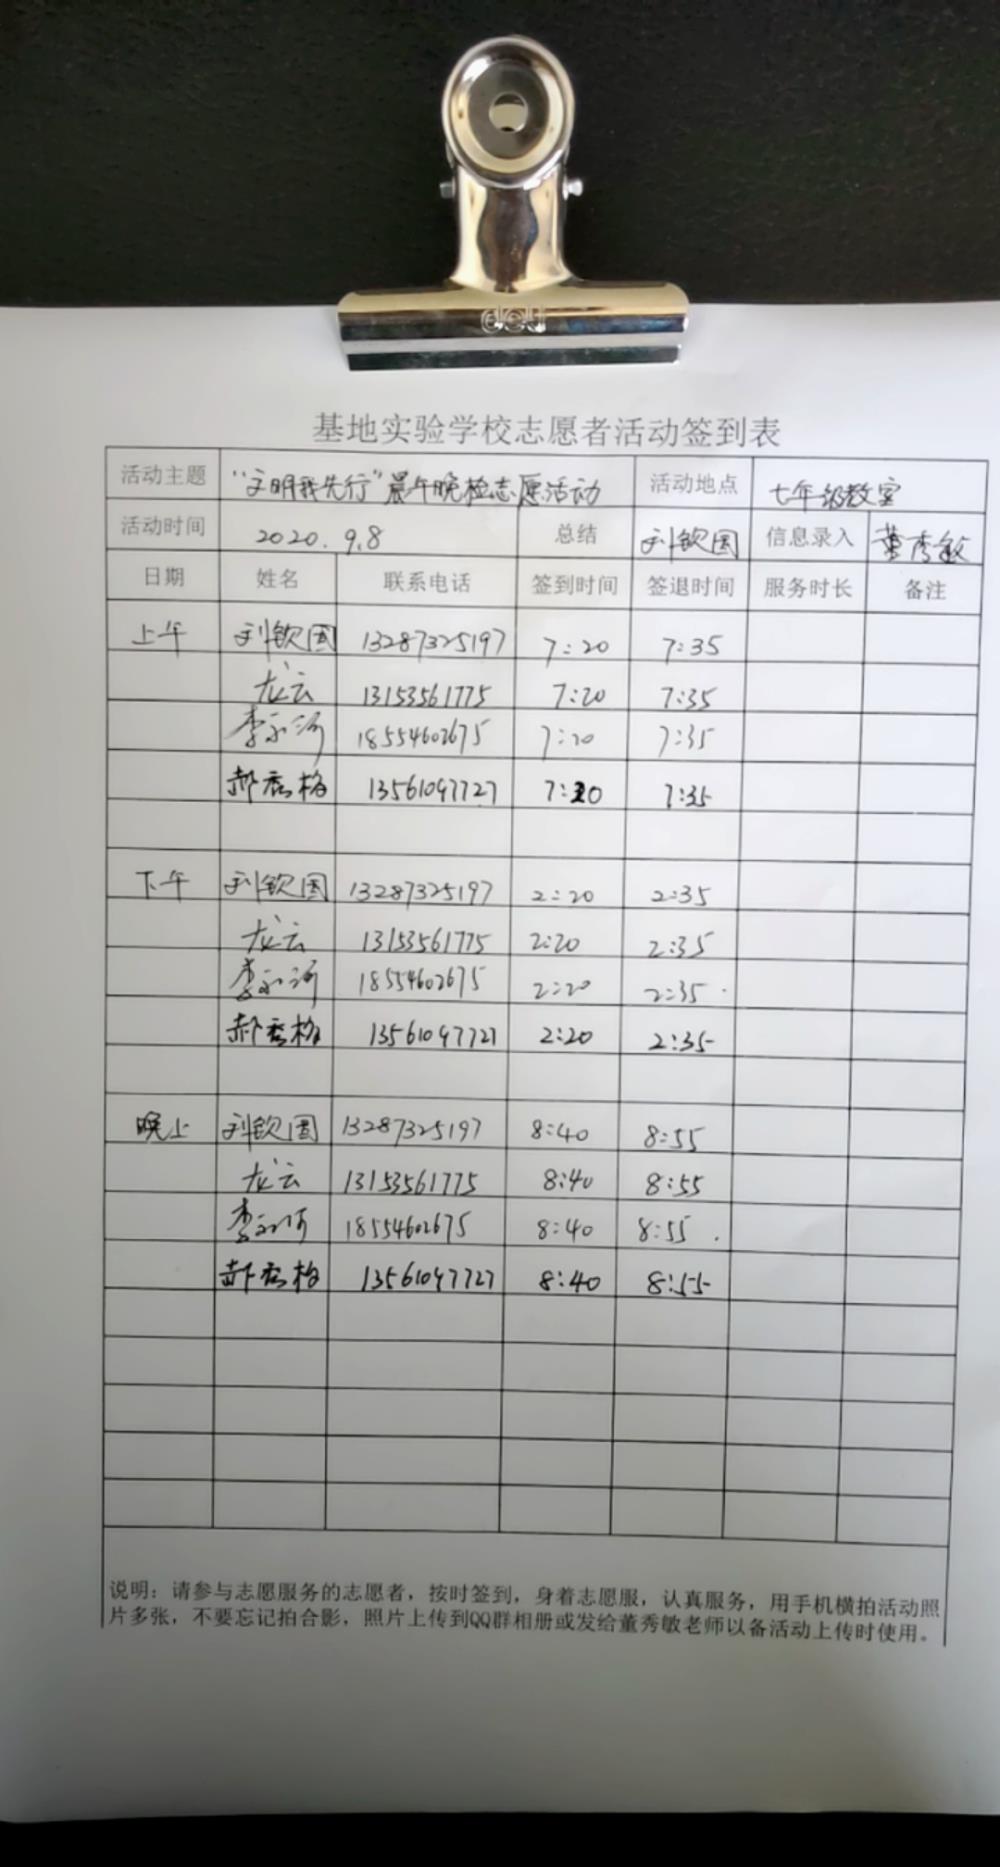 deli
基地实验学校志愿者活动签到表
活动主题 “文明我先行”晨午晚检志愿活动 活动地点 七年级教室
活动时间 2020.9.8 总结 刘钦国 信息录入 董秀敏
日期 姓名 联系电话 签到时间 签退时间 服务时长 备注
上午 刘钦国 13287325197 7:20 7:35
龙云 13153561775 7:20 7:35
李永河 18554602675 7:20 7:35
郝秀梅 13561097727 7:20 7:35
下午 刘钦国 13287325197 2:20 2:35
龙云 13153561775 2:20 2:35
李永河 18554602675 2:20 2:35
郝秀梅 13561097727 2:20 2:35
晚上 刘钦国 13287325197 8:40 8:55
龙云 13153561775 8:40 8:55
李永河 18554602675 8:40 8:55
郝秀梅 13561097727 8:40 8:55
说明：请参与志愿服务的志愿者，按时签到，身着志愿服，认真服务，用手机横拍活动照
片多张，不要忘记拍合影，照片上传到QQ群相册或发给董秀敏老师以备活动上传时使用。